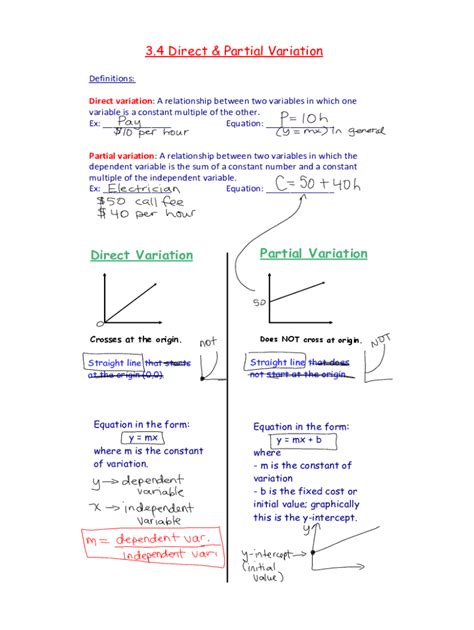 3.4 Direct & Partial Variation
Definitions:
Direct variation: A relationship between two variables in which one
variable is a constant multiple of the other.
Ex: Pay Equation: P=10h
$10 per hour (y = mx) in general
Partial variation: A relationship between two variables in which the
dependent variable is the sum of a constant number and a constant
multiple of the independent variable.
Ex: Electrician Equation: C=50+40h
$50 call fee
$40 per hour
Direct Variation
0
Crosses at the origin.
not
Straight line that starts
at the origin (0,0).
Equation in the form:
y = mx
where m is the constant
of variation.
y → dependent
variable
x → independent
variable
m = dependent var.
independent vari
Partial Variation
50
Does NOT cross at origin.
NOT
Straight line that does
not start at the origin
Equation in the form:
y = mx + b
where
- m is the constant of
variation
- b is the fixed cost or
initial value; graphically
this is the y-intercept.
y
y-intercept
(initial
value)
x